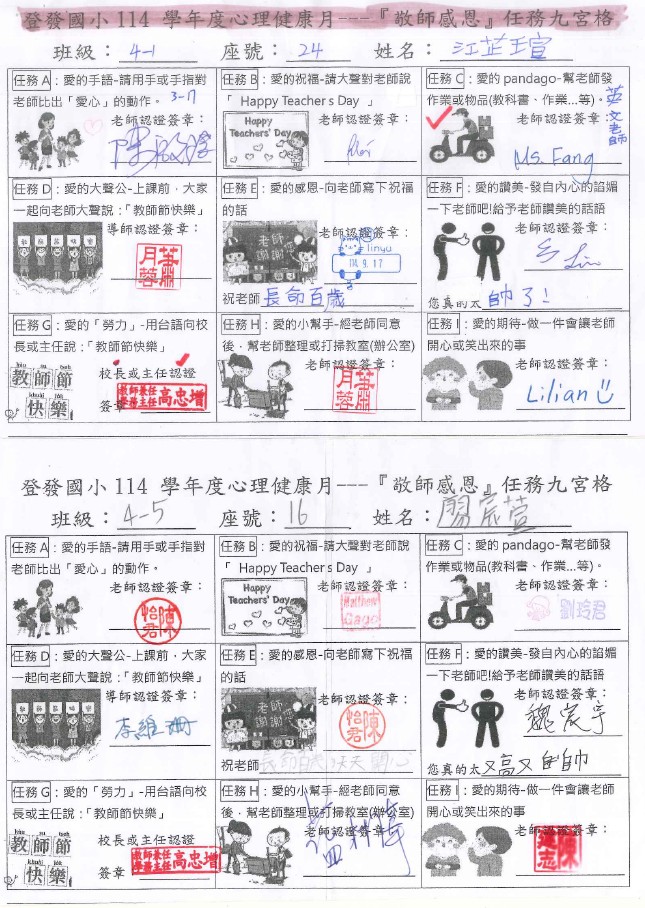 登發國小 114 學年度心理健康月---『敬師感恩』任務九宮格
班級：4-1 座號：24 姓名：江芷瑄
任務 A：愛的手語-請用手或手指對
老師比出「愛心」的動作。 3-17
老師認證簽章：
任務 B：愛的祝福-請大聲對老師說
「 Happy Teacher's Day 」
Happy
Teachers' Day
老師認證簽章：
任務 C：愛的 pandago-幫老師發
作業或物品(教科書、作業...等)。
英文老師
老師認證簽章：
Ms. Fang
任務 D：愛的大聲公-上課前，大家
一起向老師大聲說：「教師節快樂」
導師認證簽章：
任務 E：愛的感恩-向老師寫下祝福
的話
老師 謝謝
老師認證簽章：
linyu
114. 9. 17
祝老師 長命百歲
任務 F：愛的讚美-發自內心的諂媚
一下老師吧!給予老師讚美的話語
老師認證簽章：
您真的太 帥了！
任務 G：愛的「勞力」-用台語向校
長或主任說：「教師節快樂」
教師節
快樂
校長或主任認證
簽章
教師兼任
學務主任 高忠增
任務 H：愛的小幫手-經老師同意
後，幫老師整理或打掃教室(辦公室)
老師認證簽章：
任務 I：愛的期待-做一件會讓老師
開心或笑出來的事
老師認證簽章：
Lilian
登發國小 114 學年度心理健康月---『敬師感恩』任務九宮格
班級：4-5 座號：16 姓名：陽宸萱
任務 A：愛的手語-請用手或手指對
老師比出「愛心」的動作。
老師認證簽章：
陳怡君
任務 B：愛的祝福-請大聲對老師說
「 Happy Teacher's Day 」
Happy
Teachers' Day
老師認證簽章：
Matthew
Gayo
任務 C：愛的 pandago-幫老師發
作業或物品(教科書、作業...等)。
老師認證簽章：
劉玲君
任務 D：愛的大聲公-上課前，大家
一起向老師大聲說：「教師節快樂」
導師認證簽章：
李維珊
任務 E：愛的感恩-向老師寫下祝福
的話
老師 謝謝
老師認證簽章：
陳怡君
祝老師 長命百歲天天開心
任務 F：愛的讚美-發自內心的諂媚
一下老師吧!給予老師讚美的話語
老師認證簽章：
魏宸宇
您真的太 又高又自帥
任務 G：愛的「勞力」-用台語向校
長或主任說：「教師節快樂」
教師節
快樂
校長或主任認證
簽章
教師兼任
學務主任 高忠增
任務 H：愛的小幫手-經老師同意
後，幫老師整理或打掃教室(辦公室)
老師認證簽章：
任務 I：愛的期待-做一件會讓老師
開心或笑出來的事
老師認證簽章：